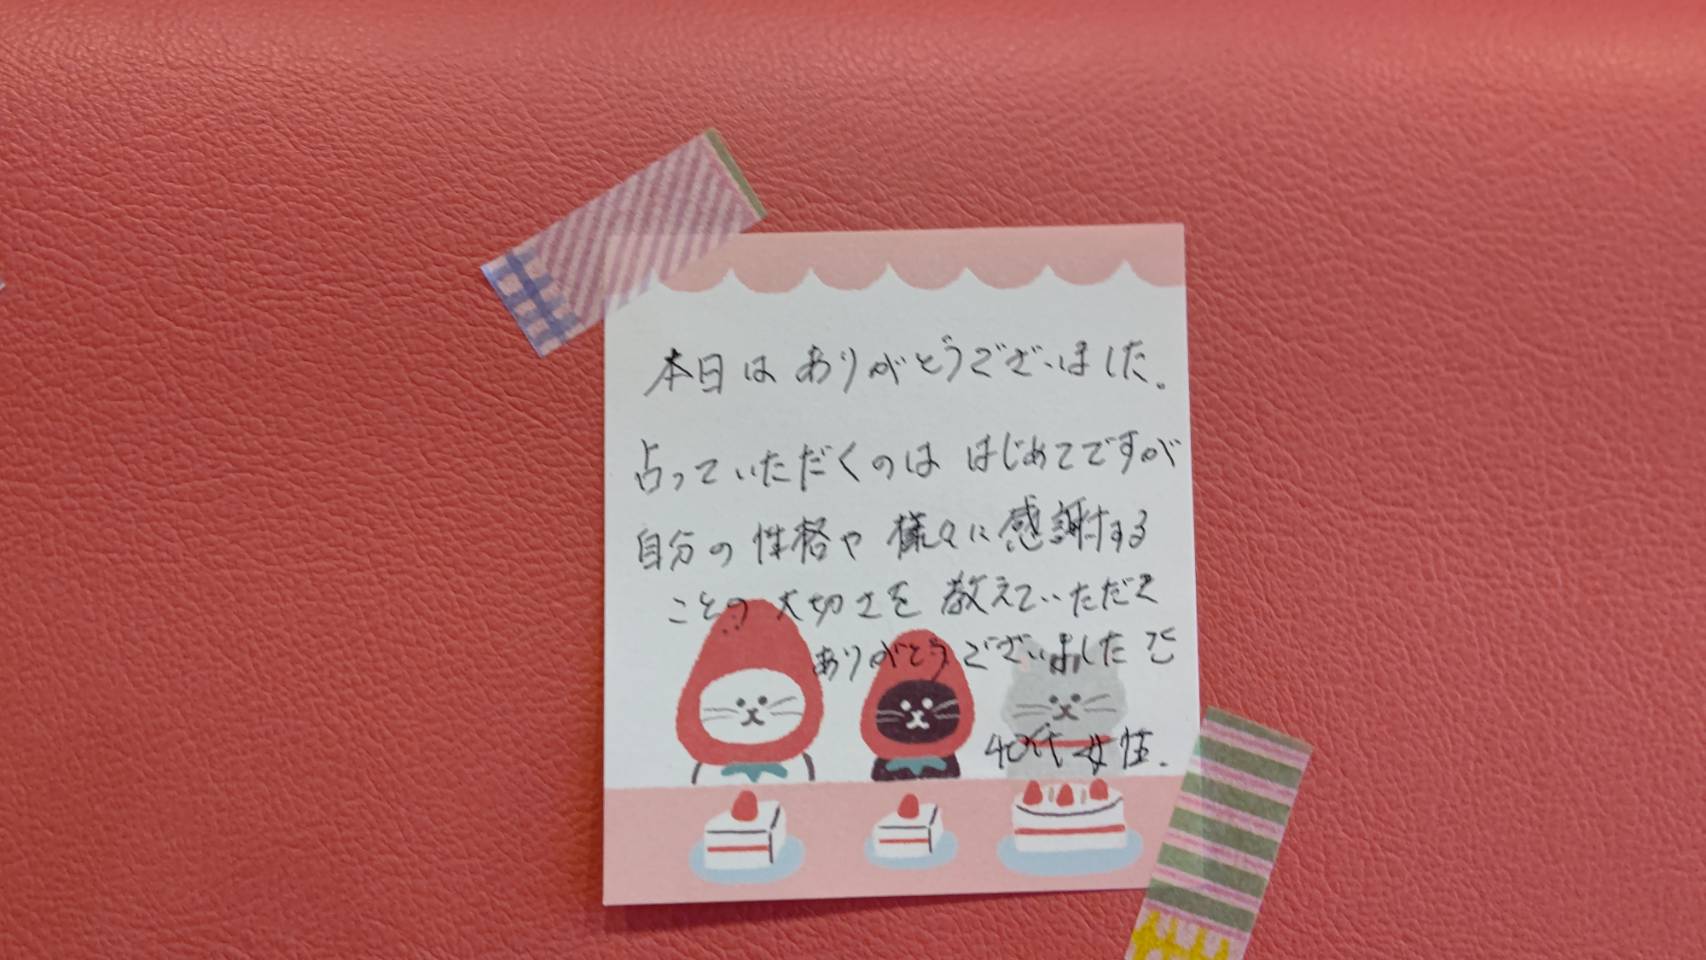 本日は ありがとうございました。
占っていただくのは はじめてですが
自分の 性格や 様々に感謝する
ことの 大切さを 教えていただき
ありがとうございました
40代 女性.